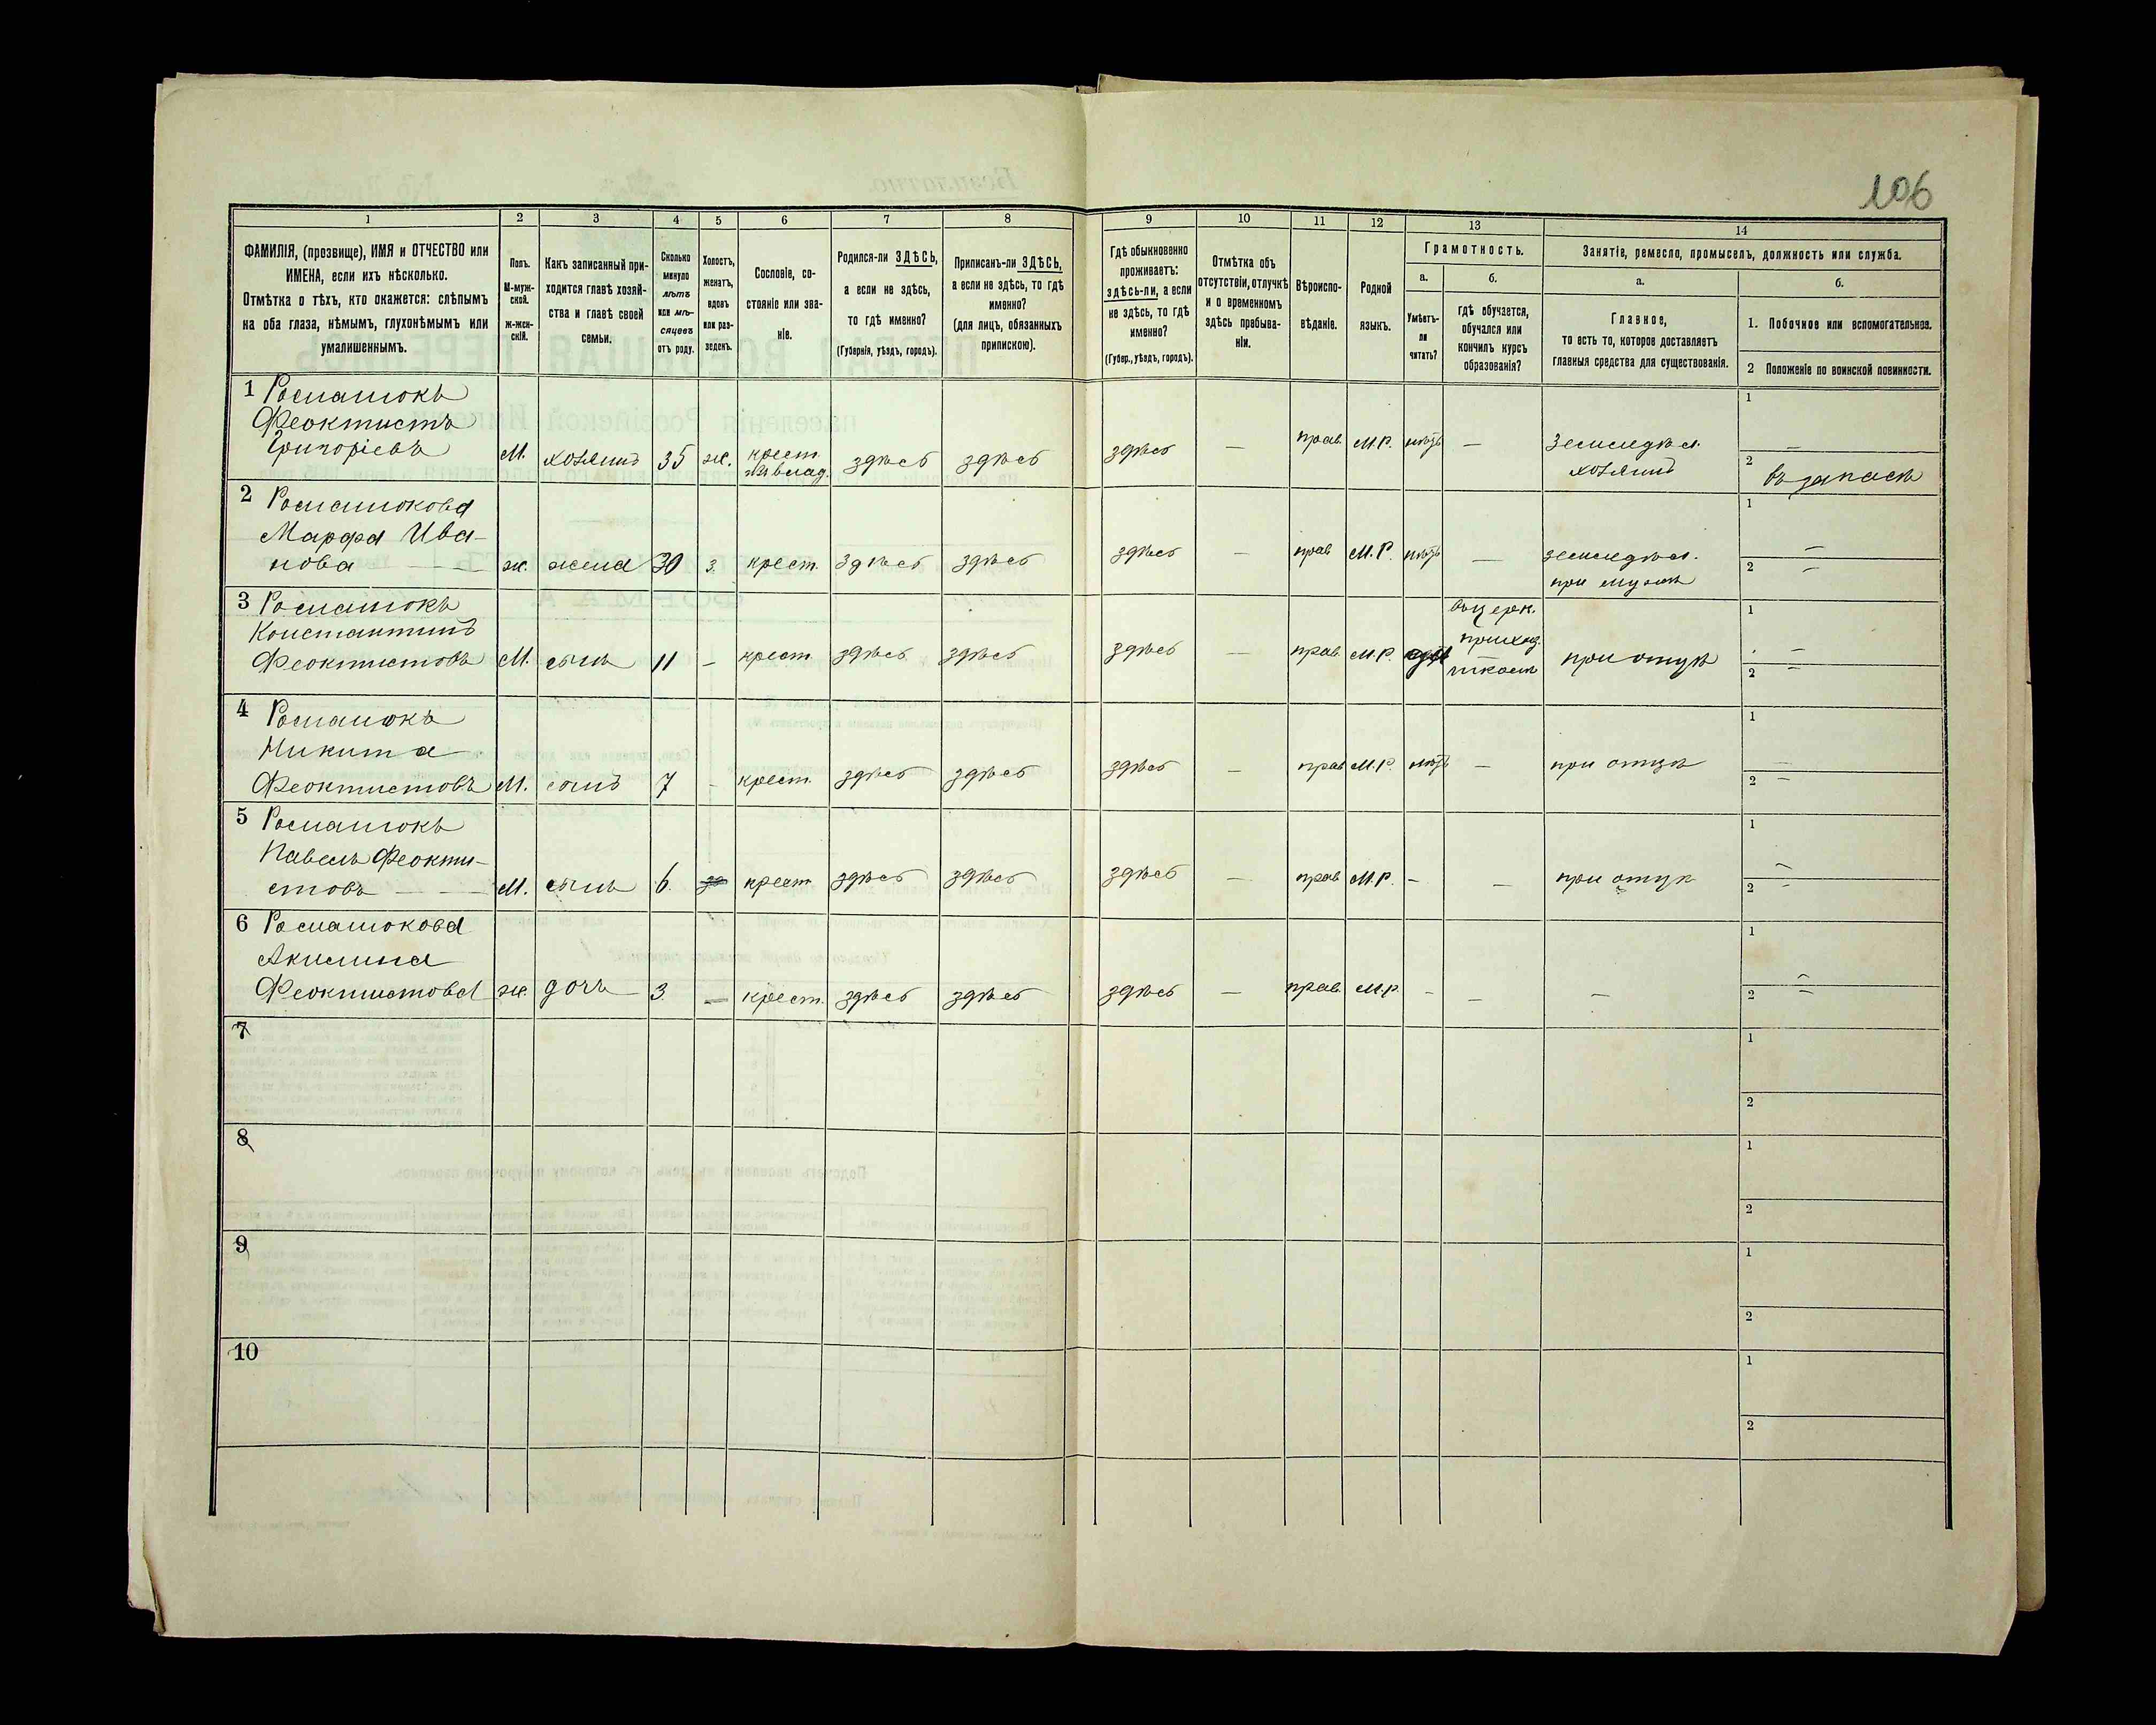 106
1
2
3
4
5
6
7
8
9
10
11
12
13
14
ФАМИЛІЯ, (прозвище), ИМЯ и ОТЧЕСТВО или
ИМЕНА, если ихъ нѣсколько.
Отмѣтка о тѣхъ, кто окажется: слѣпымъ
на оба глаза, нѣмымъ, глухонѣмымъ или
умалишеннымъ.
Полъ.
М-муж-
ской.
Ж-жен-
скій.
Какъ записанный при-
ходится главѣ хозяй-
ства и главѣ своей
семьи.
Сколько
минуло
лѣтъ
или мѣ-
сяцевъ
отъ роду.
Холостъ,
женатъ,
вдовъ
или раз-
веденъ.
Сословіе, со-
стояніе или зва-
ніе.
Родился-ли ЗДѢСЬ,
а если не здѣсь,
то гдѣ именно?
(Губернія, уѣздъ, городъ).
Приписанъ-ли ЗДѢСЬ,
а если не здѣсь, то гдѣ
именно?
(для лицъ, обязанныхъ
припискою).
Гдѣ обыкновенно
проживаетъ:
здѣсь-ли, а если
не здѣсь, то гдѣ
именно?
(Губер., уѣздъ, городъ).
Отмѣтка объ
отсутствіи, отлучкѣ
и о временномъ
здѣсь пребыва-
ніи.
Вѣроиспо-
вѣданіе.
Родной
языкъ.
Грамотность.
а.
Умѣетъ-
ли
читать?
б.
гдѣ обучается,
обучался или
кончилъ курсъ
образованія?
Занятіе, ремесло, промыселъ, должность или служба.
а.
Главное,
то есть то, которое доставляетъ
главныя средства для существованія.
б.
1. Побочное или вспомогательное.
2 Положеніе по воинской повинности.
1 Романюкъ
Феоктистъ
Григоріевъ
М. хозяинъ 35 ж. крест. здѣсь здѣсь здѣсь — прав. М.Р. нѣтъ —
земледѣл.
хозяинъ
1 —
2 въ запасѣ
2 Романюкова
Марфа Ива-
нова — —
ж. жена 30 з. крест. здѣсь здѣсь здѣсь — прав. М.Р. нѣтъ —
земледѣл.
при мужѣ
1 —
2 —
3 Романюкъ
Константинъ
Феоктистовъ
М. сынъ 11 – крест. здѣсь здѣсь здѣсь — прав. М.Р.
въ церк.
приход.
школѣ
при отцѣ
1 —
2 —
4 Романюкъ
Никита
Феоктистовъ
М. сынъ 7 - крест. здѣсь здѣсь здѣсь — прав. М.Р. нѣтъ — при отцѣ
1 —
2 —
5 Романюкъ
Павелъ Феокти-
стовъ — —
М. сынъ 6. крест. здѣсь здѣсь здѣсь — прав. М.Р. — — при отцѣ
1 —
2 -
6 Романюкова
Акилина
Феоктистова
ж. дочь 3 — крест. здѣсь здѣсь здѣсь — прав. М.р. - — —
1 —
2 —
7
1
2
8
1
2
9
1
2
10
1
2